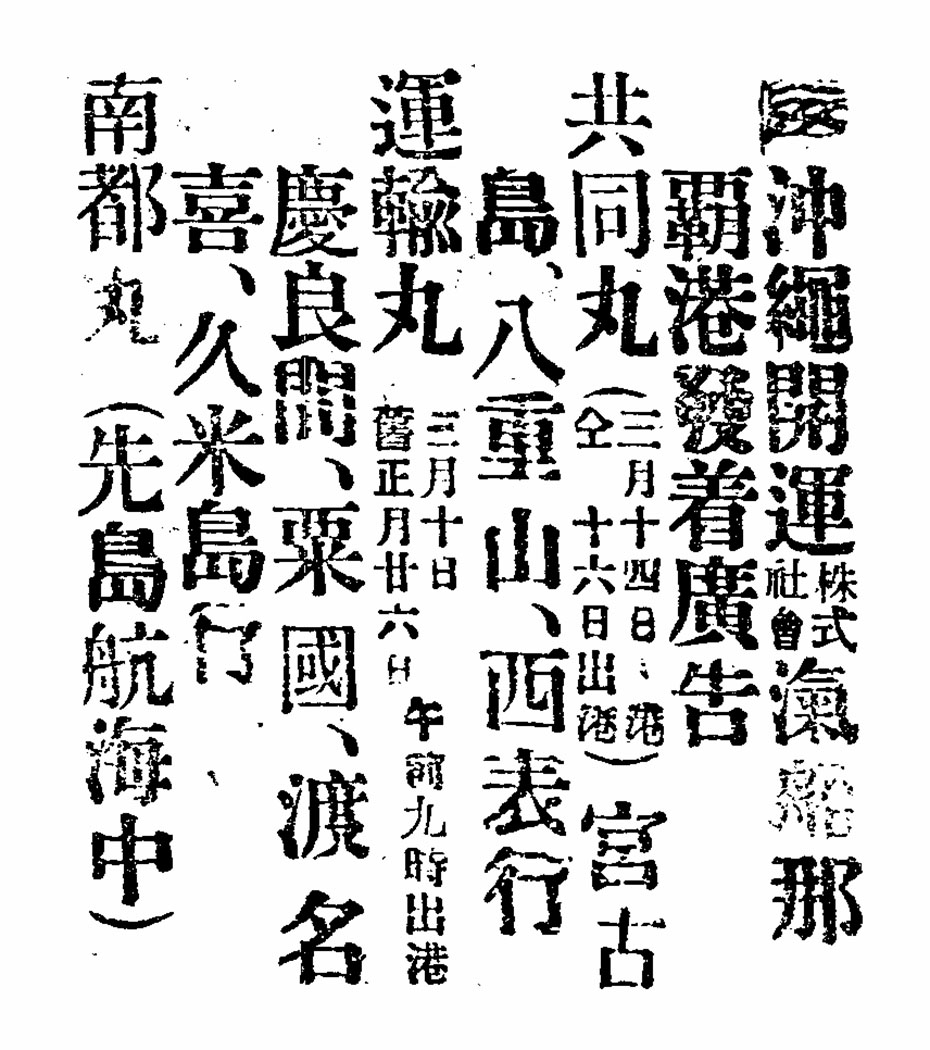 沖繩開運株式社會滊船那
覇港發着廣告
共同丸(三月十四日、港 仝 十六日出港)宮古
島、八重山、西表行
運輸丸 三月十日 舊正月廿六日 午前九時出港
慶良間、粟國、渡名
喜、久米島行
南都丸(先島航海中)